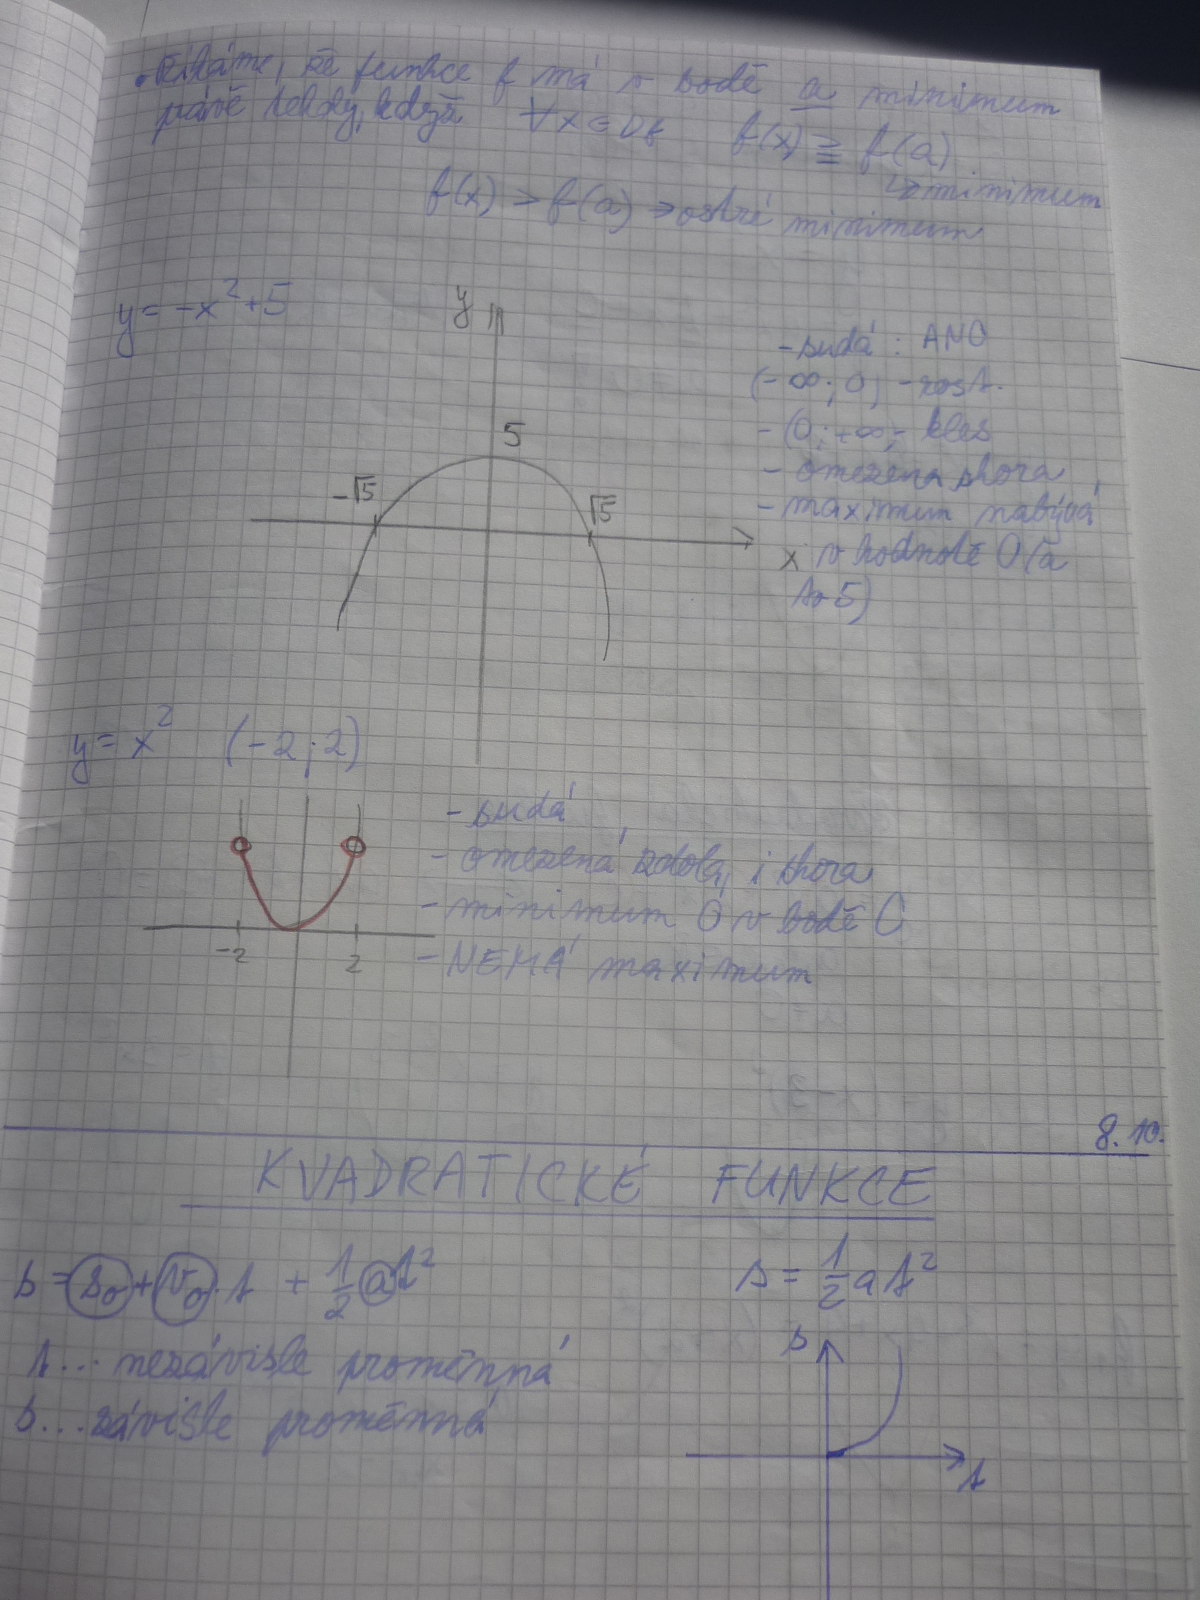 • Říkáme, že funkce f má v bodě a minimum
právě tehdy, když ∀x∈Df f(x) ≧ f(a)
↳ minimum
f(x) > f(a) → ostré minimum
y = -x² + 5
y
5
-√5
√5
x
- sudá : ANO
(-∞; 0) - rost.
- (0; +∞ - kles
- omezená shora
- maximum nabývá
v hodnotě 0 (a
to 5)
y = x² (-2; 2)
-2
2
- sudá
- omezená zdola, i shora
- minimum 0 v bodě 0
- NEMÁ maximum
8. 10.
KVADRATICKÉ FUNKCE
s = s₀ + v₀ · t + 1/2 a t²
s = 1/2 a t²
t... nezávisle proměnná
s... závisle proměnná
s
t